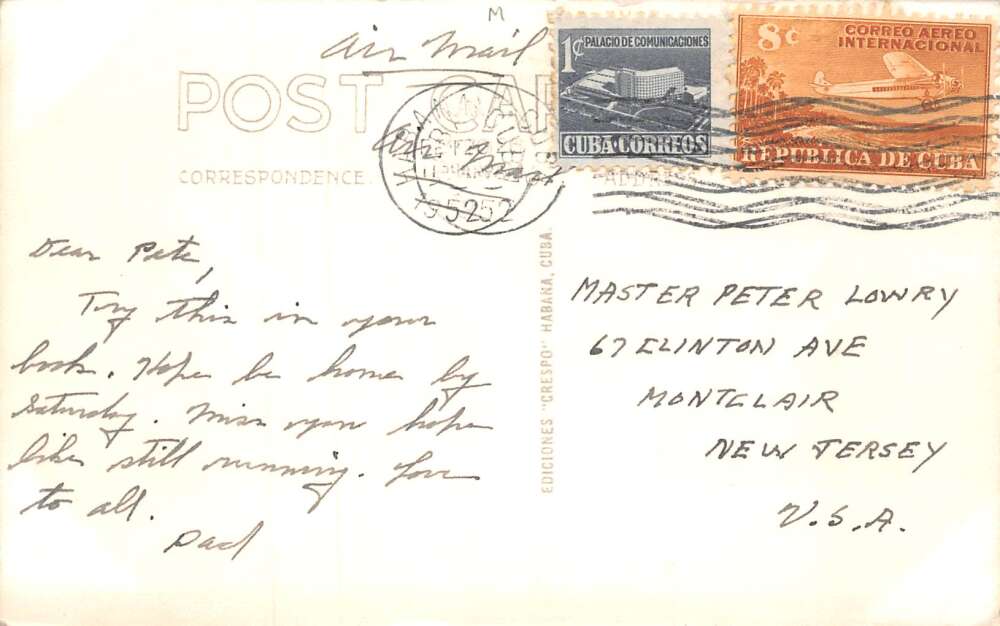 M
Air Mail
POST CA
1¢ PALACIO DE COMUNICACIONES
CUBA CORREOS
8¢ CORREO AEREO
INTERNACIONAL
REPUBLICA DE CUBA
HABANA CUBA
Air Mail
1952 52
CORRESPONDENCE.
ADDRESS
Dear Pete,
Try this in your
book. Hope be home by
Saturday. Miss you hope
bike still running. Love
to all.
Dad
EDICIONES "CRESPO" HABANA, CUBA.
MASTER PETER LOWRY
67 CLINTON AVE
MONTCLAIR
NEW JERSEY
U.S.A.